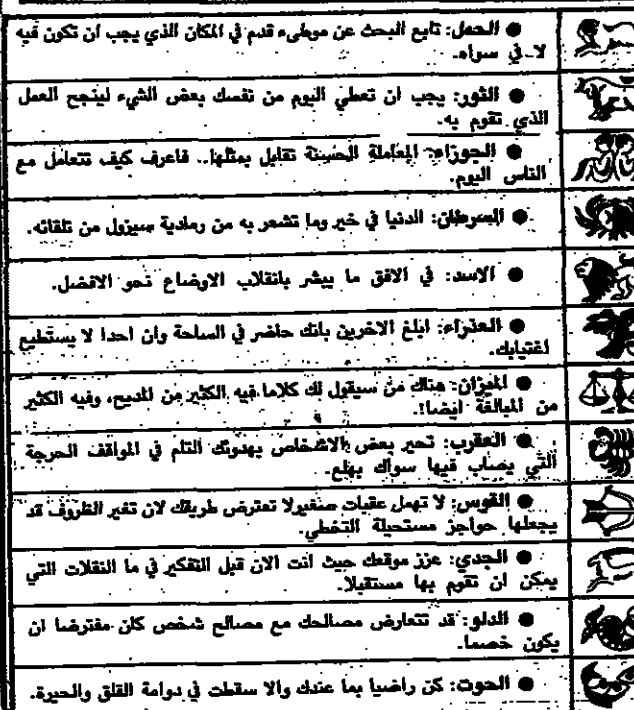 ● الحمل: تابع البحث عن موطىء قدم في المكان الذي يجب ان تكون فيه
لا في سواه.
● الثور: يجب ان تعطي اليوم من نفسك بعض الشيء لينجح العمل
الذي تقوم به.
● الجوزاء: المعاملة الحسنة تقابل بمثلها.. فاعرف كيف تتعامل مع
الناس اليوم.
● السرطان: الدنيا في خير وما تشعر به من رمادية سيزول من تلقائه.
● الاسد: في الافق ما يبشر بانقلاب الاوضاع نحو الافضل.
● العذراء: ابلغ الاخرين بانك حاضر في الساحة وان احدا لا يستطيع
اغتيابك.
● الميزان: هناك من سيقول لك كلاما فيه الكثير من المديح، وفيه الكثير
من المبالغة ايضا!.
● العقرب: تحير بعض الاشخاص بهدوئك التام في المواقف الحرجة
التي يصاب فيها سواك بهلع.
● القوس: لا تهمل عقبات صغيرة تعترض طريقك لان تغير الظروف قد
يجعلها حواجز مستحيلة التخطي.
● الجدي: عزز موقعك حيث انت الان قبل التفكير في ما النقلات التي
يمكن ان تقوم بها مستقبلا.
● الدلو: قد تتعارض مصالحك مع مصالح شخص كان مفترضا ان
يكون خصما.
● الحوت: كن راضيا بما عندك والا سقطت في دوامة القلق والحيرة.